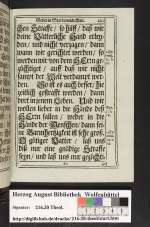 chen Straffe / so hilff / daß wir
deine Vätterliche Hand erken-
den / und nicht verzagen / dann
wann wir gerichtet werden / so
werden wir von dem HErrn ge-
züchtiget / auff daß wir nicht
sampt der Welt verdampt wer-
den. So ist es auch besser / hie
zeitlich gestrafft werden / dann
dort in jenem Leben. Und wir
wollen lieber in die Hände des
HErrn fallen / weder in die
Hände der Menschen / dann sei-
ne Barmhertzigkeit ist sehr groß.
O gütiger Vatter / laß uns
diß nur eine gnädige Straffe
seyn / und laß uns nur
Herzog August Bibliothek Wolfenbüttel
Signatur: 216.20 Theol.
http://diglib.hab.de/drucke/216-20-theol/start.htm